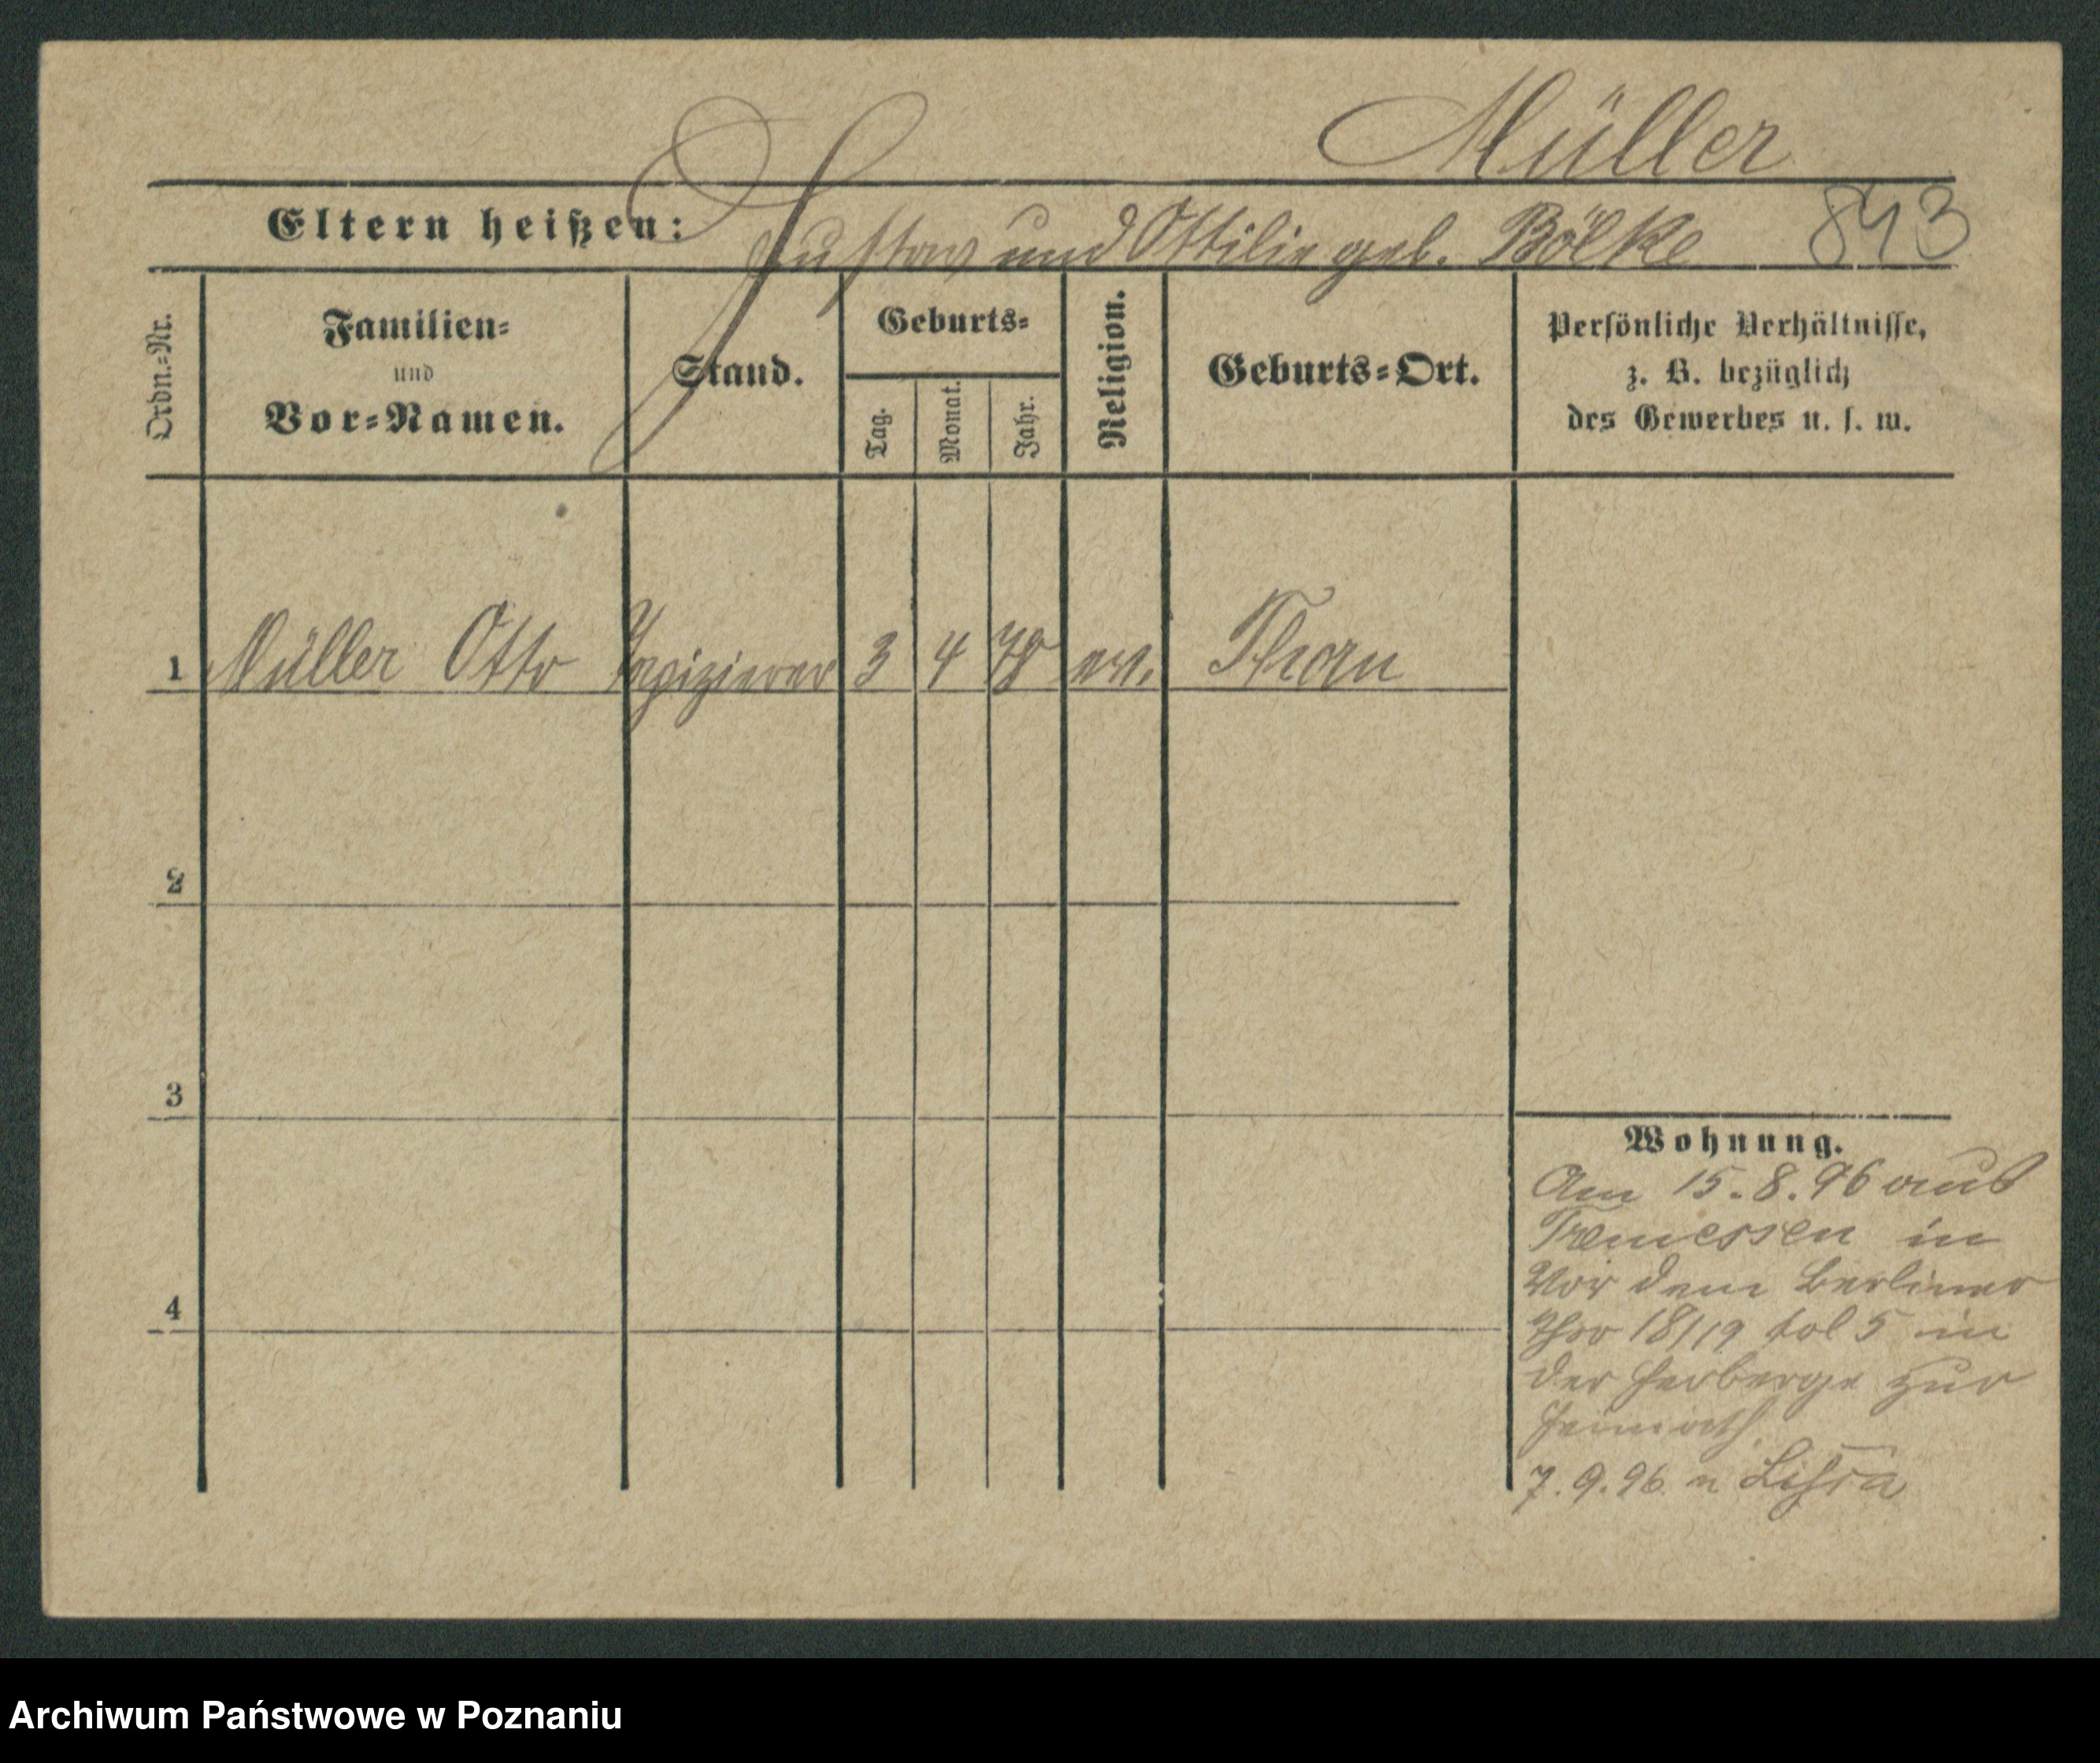 Müller
Eltern heißen: Gustav und Ottilie geb. Bölke 843
Ordn.=Nr.
Familien=
und
Vor=Namen.
Stand.
Geburts=
Tag.
Monat.
Jahr.
Religion.
Geburts=Ort.
Persönliche Verhältnisse,
z. B. bezüglich
des Gewerbes u. s. w.
1 Müller Otto Tapezierer 3 4 78 ev. Thorn
2
3
4
Wohnung.
Am 15.8.96 aus
Tremessen in
Vor dem Berliner
Thor 18/19 bei in
der Herberge zur
Heimath
7.9.96 n Lissa
Archiwum Państwowe w Poznaniu